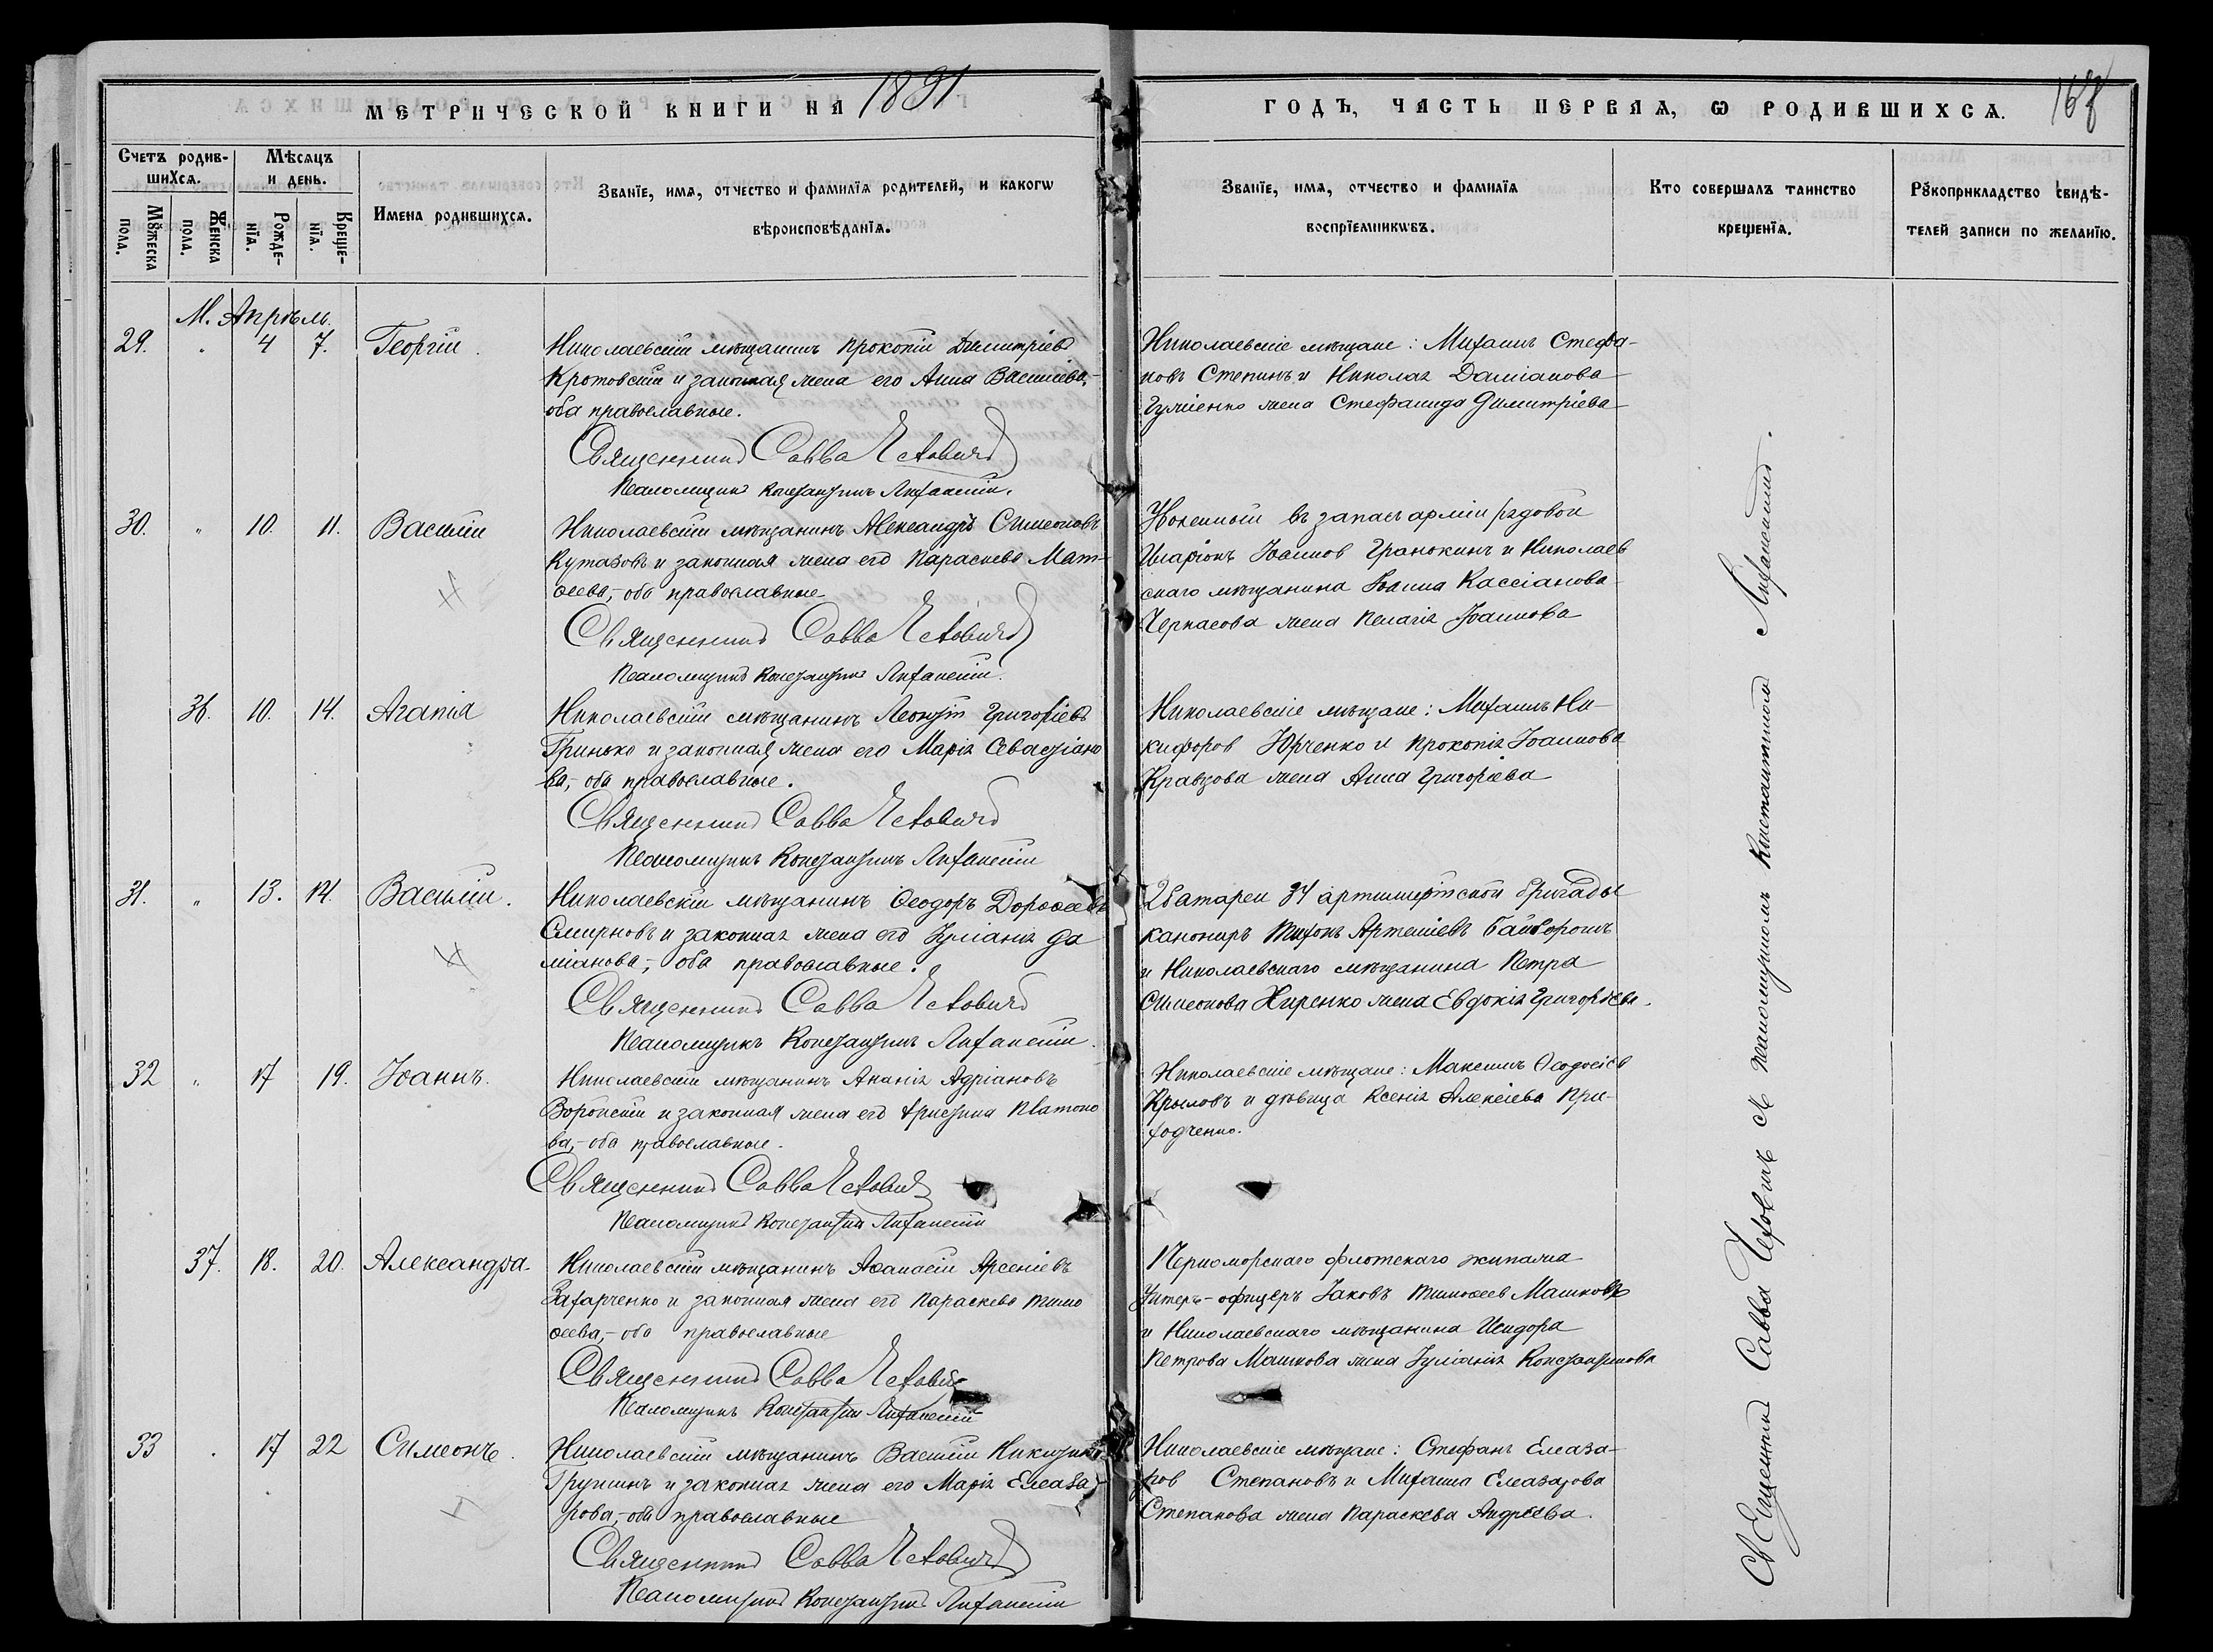 МЕТРИЧЕСКОЙ КНИГИ НА 1891
ГОДЪ, ЧАСТЬ ПЕРВАЯ, Ѡ РОДИВШИХСЯ.
Счетъ родив-
шихся.
Мѣсяцъ
и день.
Мꙋжеска
пола.
Женска
пола.
Рожде-
нїя.
Креще-
нїя.
Имена родившихся.
Званїе, имя, отчество и фамилїя родителей, и какогѡ
вѣроисповѣданїя.
Званїе, имя, отчество и фамилїя
воспрїемникѡвъ.
Кто совершалъ таинство
крещенїя.
Рꙋкоприкладство свидѣ-
телей записи по желанїю.
М. Апрѣль.
29. " 4 7. Георгій.
Николаевскій мѣщанинъ Прокопій Димитріевъ
Кротовскій и законная жена его Анна Васильева,-
оба православные.
Священникъ Савва Чеховичъ
Псаломщикъ Константинъ Лифанскій.
Николаевскіе мѣщане: Михаилъ Стефа-
новъ Степинъ и Николая Даміанова
жена Стефанида Димитріева
30. " 10. 11. Василій
Николаевскій мѣщанинъ Александръ Симеоновъ
Кутазовъ и законная жена его Параскева Мат-
ѳеева,- оба православные
Священникъ Савва Чеховичъ
Псаломщикъ Константинъ Лифанскій.
Уволенный въ запасъ арміи рядовой
Иларіонъ Іоанновъ Гранокинъ и Николаев
скаго мѣщанина Іоанна Кассіанова
Черкасова жена Пелагія Іоаннова
36. 10. 14. Агапія
Николаевскій мѣщанинъ Леонтій Григоріевъ
Гринько и законная жена его Марія Севастіано
ва,- оба православные.
Священникъ Савва Чеховичъ
Псаломщикъ Константинъ Лифанскій
Николаевскіе мѣщане: Михаилъ Ни-
кифоровъ Юрченко и Прокопія Іоаннова
Кравцова жена Анна Григоріева
31. " 13. 14. Василій.
Николаевскій мѣщанинъ Ѳеодоръ Дороѳеевъ
Смирновъ и законная жена его Іуліанія Да
міанова,- оба православные.
Священникъ Савва Чеховичъ
Псаломщикъ Константинъ Лифанскій.
2 батареи 34 артиллерійской бригады
канониръ Тихонъ Артеміевъ
и Николаевскаго мѣщанина Петра
Симеонова Хиренко жена Евдокія Григоріева.
32 " 17 19. Іоаннъ.
Николаевскій мѣщанинъ Ананія Адріановъ
Воронскій и законная жена его Христина Платоно
ва,- оба православные.
Священникъ Савва Чеховичъ
Псаломщикъ Константинъ Лифанскій
Николаевскіе мѣщане: Максимъ Ѳеодосіев
Крыловъ и дѣвица Ксенія Алексіева При-
ходченко.
37. 18. 20. Александра.
Николаевскій мѣщанинъ Аѳанасій Арсеніевъ
Захарченко и законная жена его Параскева Тимо
ѳеева,- оба православные
Священникъ Савва Чеховичъ
Псаломщикъ Константинъ Лифанскій
Черноморскаго флотскаго экипажа
Унтеръ-офицеръ Іаковъ Тимоѳеев Машковъ
и Николаевскаго мѣщанина Исидора
Петрова Машкова жена Іуліанія Константинова
33 " 17 22 Симеонъ.
Николаевскій мѣщанинъ Василій Никитинъ
Групинъ и законная жена его Марія Елеаза
рова,- оба православные
Священникъ Савва Чеховичъ
Псаломщикъ Константинъ Лифанскій
Николаевскіе мѣщане: Стефанъ Елеаза-
ров Степановъ и Михаила Елеазарова
Степанова жена Параскева Андреева.
Священникъ Савва Чеховичъ съ псаломщикомъ Константиномъ Лифанскимъ.